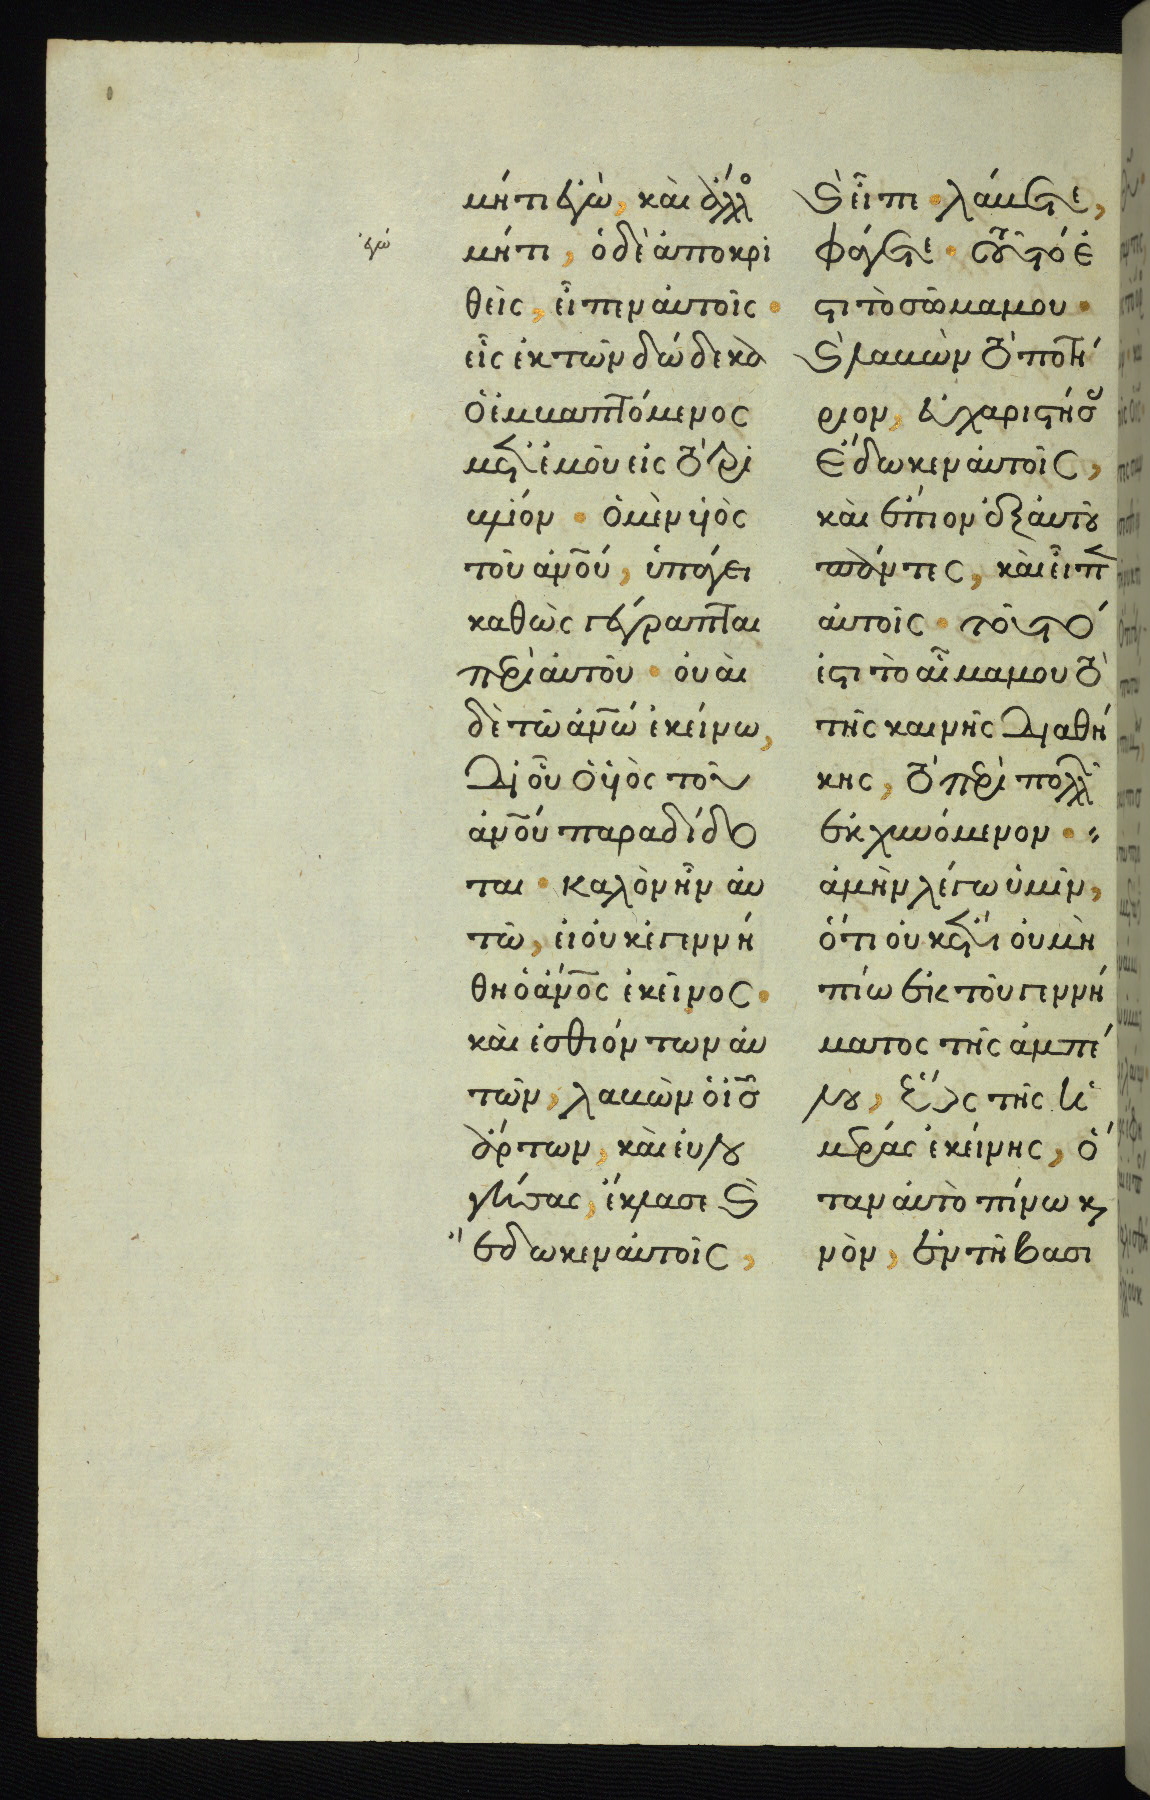 μήτι ἐγώ, καὶ ἄλλο
ἐγώ
μήτι, ὁ δὲ ἀποκρι
θεὶς, εἶπεν αὐτοῖς ·
εἷς ἐκ τῶν δώδεκα
ὁ ἐμβαπτόμενος
μετ' ἐμοῦ εἰς τὸ τρυ
βλίον · ὁ μὲν υἱὸς
τοῦ ἀν̅ο̅υ̅, ὑπάγει
καθὼς γέγραπται
περὶ αὐτοῦ · οὐαὶ
δὲ τῶ ἀν̅ω̅ ἐκείνω,
δι' οὗ ὁ υἱὸς τοῦ
ἀν̅ο̅υ̅ παραδίδο
ται · καλὸν ἦν αὐ
τῶ, εἰ οὐκ ἐγεννή
θη ὁ ἄν̅ο̅ς̅ ἐκεῖνος ·
καὶ ἐσθιόντων αὐ
τῶν, λαβὼν ὁ ι̅ς̅
ἄρτον, καὶ εὐλο
γήσας, ἔκλασε καὶ
ἔδωκεν αὐτοῖς,
καὶ εἶπε · λάβετε,
φάγετε · τοῦτό ἐ
στι τὸ σῶμα μου ·
καὶ λαβὼν τὸ ποτή
ριον, εὐχαριστήσας
ἔδωκεν αὐτοῖς,
καὶ ἔπιον ἐξ αὐτοῦ
πάντες, καὶ εἶπεν
αὐτοῖς · τοῦτό
ἐστι τὸ αἷμα μου τὸ
τῆς καινῆς διαθή
κης, τὸ περὶ πολλῶν
ἐκχυνόμενον ·
ἀμὴν λέγω ὑμῖν,
ὅτι οὐκέτι οὐ μὴ
πίω ἐκ τοῦ γεννή
ματος τῆς ἀμπέ
λου, ἕως τῆς ἡ
μέρας ἐκείνης, ὅ
ταν αὐτὸ πίνω και
νὸν, ἐν τῆ βασι